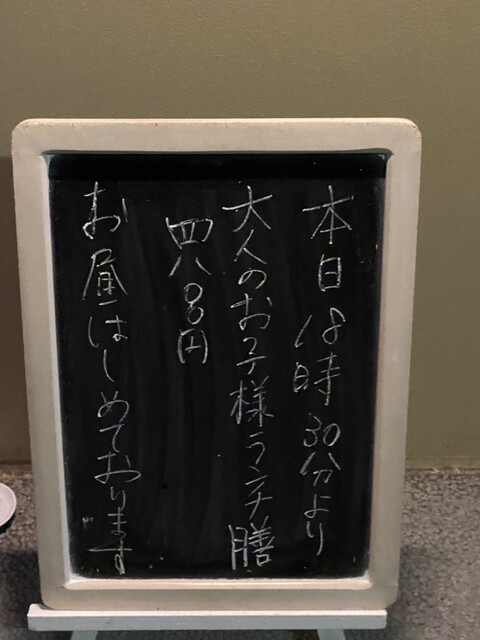 本日18時30分より
大人のお子様ランチ膳
四八〇円
お昼はじめております